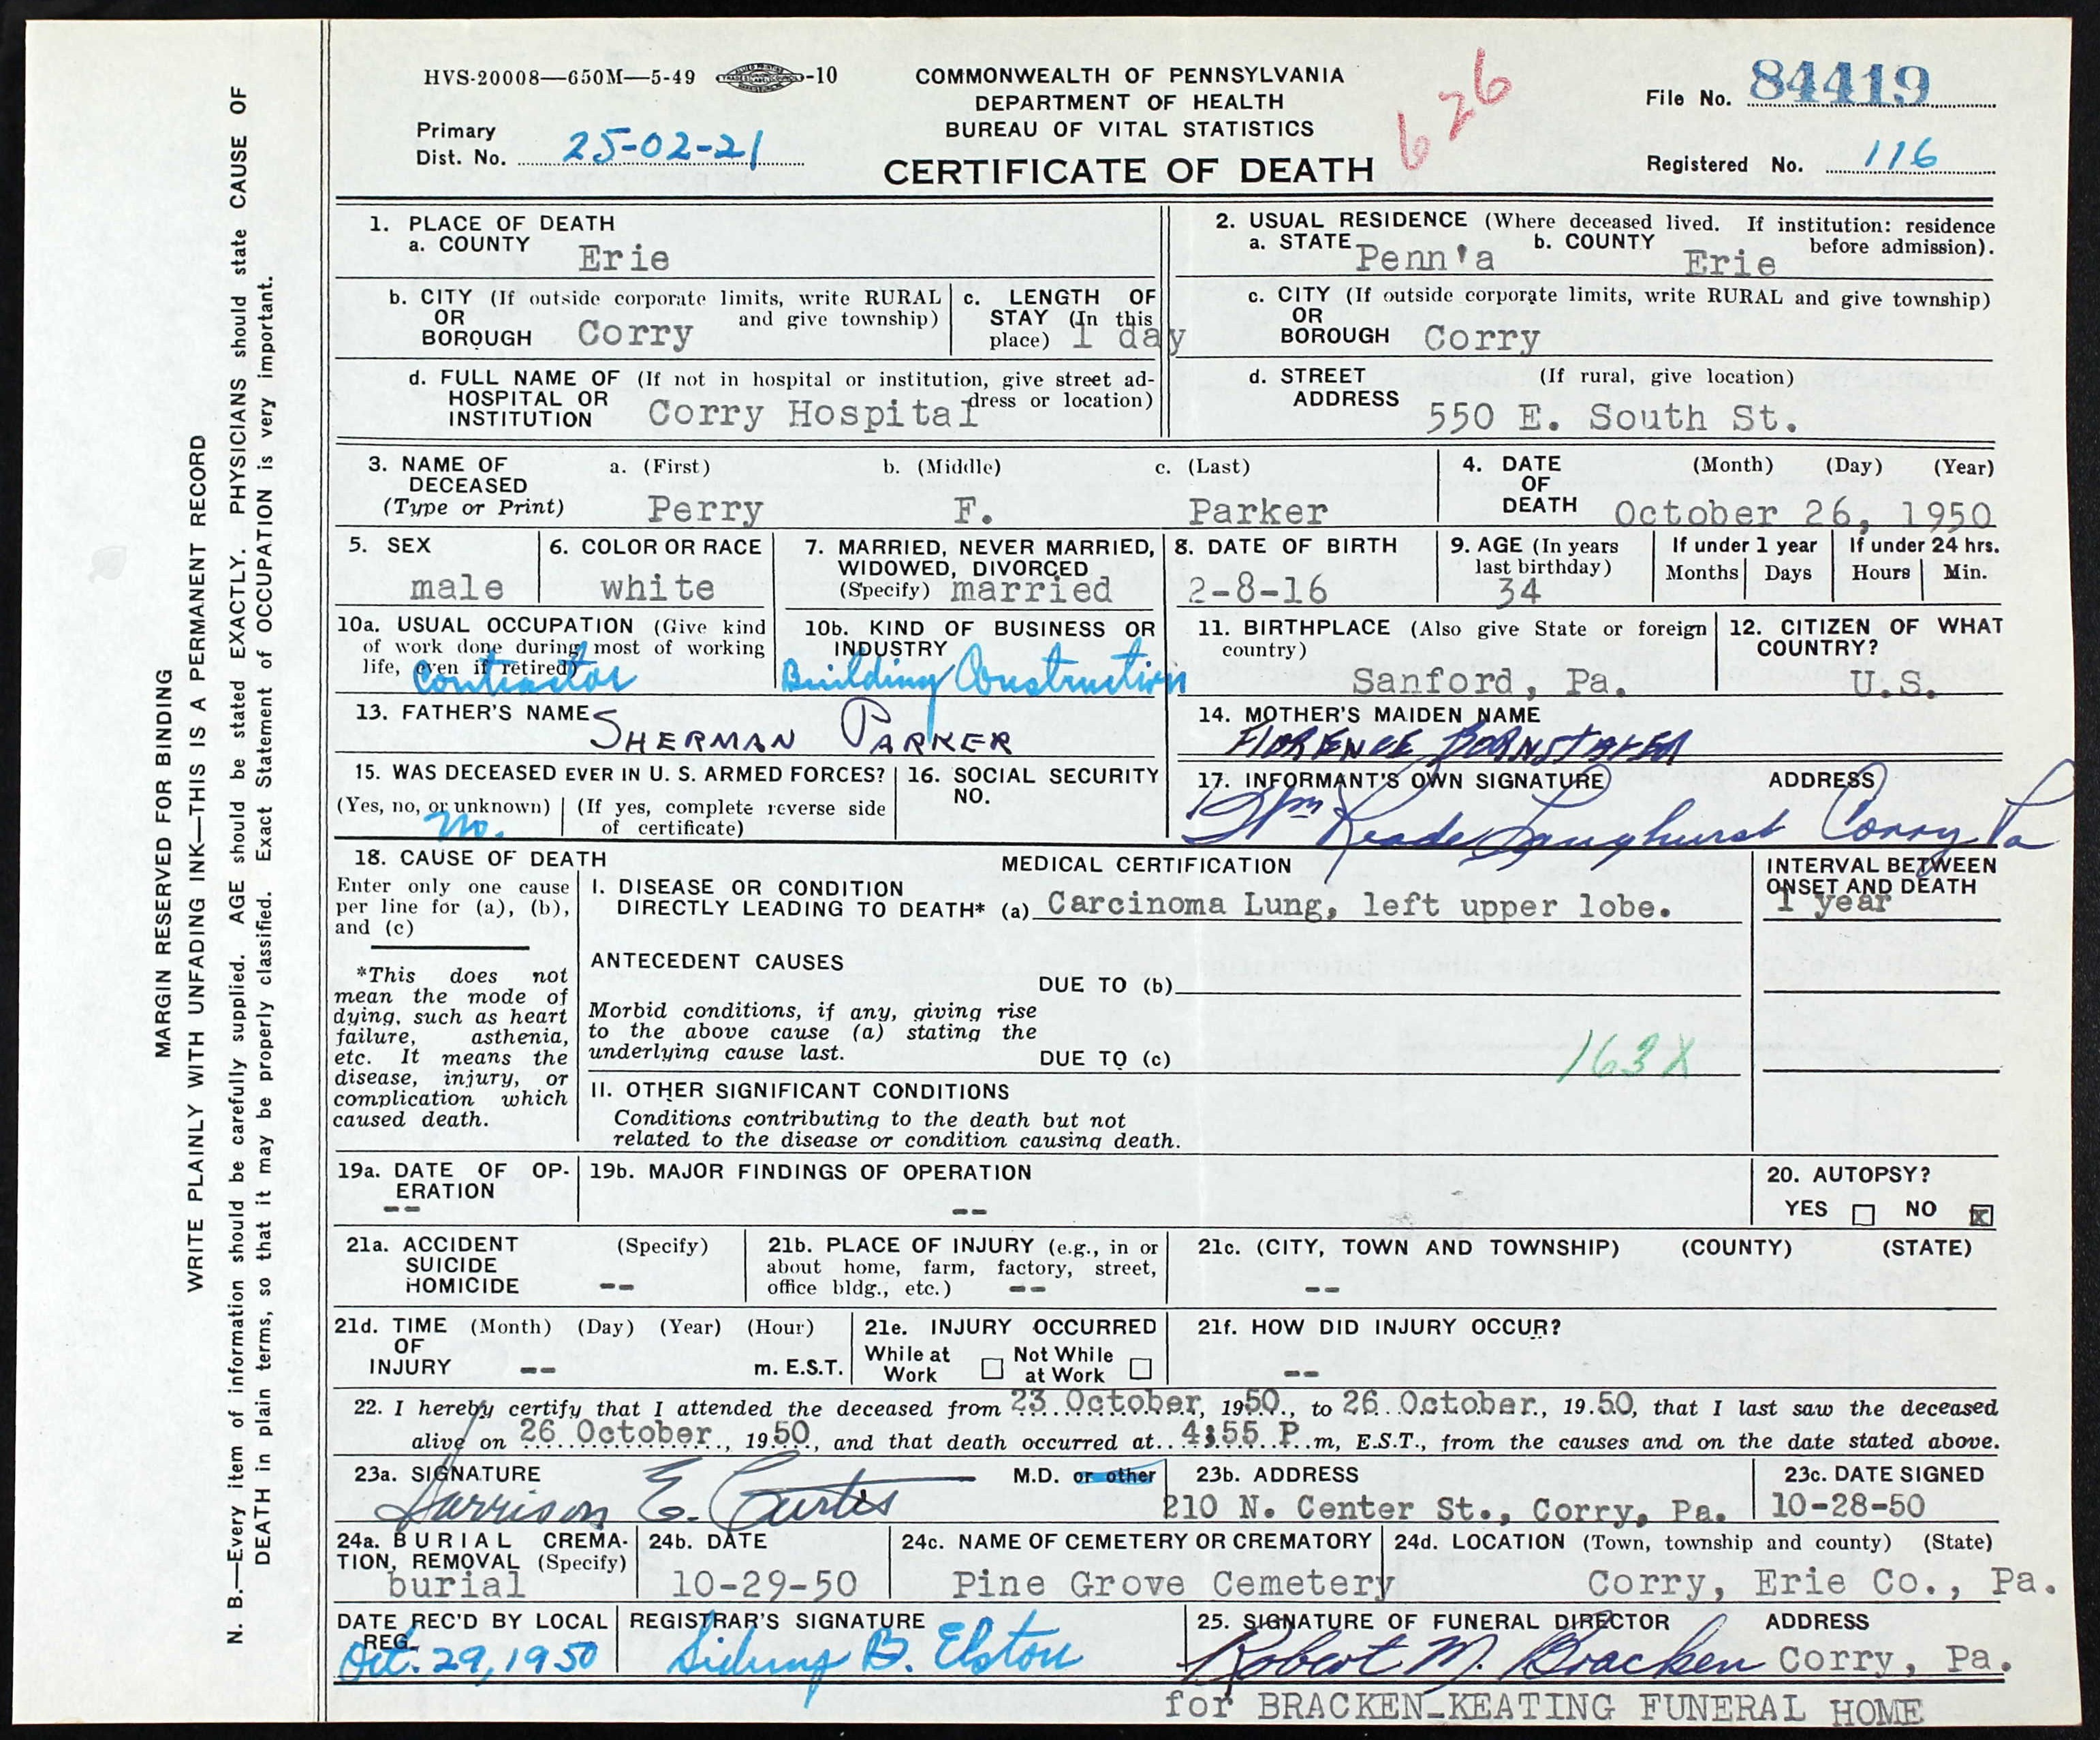 HVS-20008—650M—5-49 -10
COMMONWEALTH OF PENNSYLVANIA
DEPARTMENT OF HEALTH
BUREAU OF VITAL STATISTICS
CERTIFICATE OF DEATH
626
File No. 84419
Primary
Dist. No. 25-02-21
Registered No. 116
MARGIN RESERVED FOR BINDING
WRITE PLAINLY WITH UNFADING INK—THIS IS A PERMANENT RECORD
N. B.—Every item of information should be carefully supplied. AGE should be stated EXACTLY. PHYSICIANS should state CAUSE OF
DEATH in plain terms, so that it may be properly classified. Exact Statement of OCCUPATION is very important.
1. PLACE OF DEATH
a. COUNTY Erie
2. USUAL RESIDENCE (Where deceased lived. If institution: residence
before admission).
a. STATE Penn'a b. COUNTY Erie
b. CITY (If outside corporate limits, write RURAL
OR and give township)
BOROUGH Corry
c. LENGTH OF
STAY (In this
place) 1 day
c. CITY (If outside corporate limits, write RURAL and give township)
OR
BOROUGH Corry
d. FULL NAME OF (If not in hospital or institution, give street ad-
HOSPITAL OR dress or location)
INSTITUTION Corry Hospital
d. STREET (If rural, give location)
ADDRESS 550 E. South St.
3. NAME OF a. (First) b. (Middle) c. (Last)
DECEASED
(Type or Print) Perry F. Parker
4. DATE (Month) (Day) (Year)
OF
DEATH October 26, 1950
5. SEX
male
6. COLOR OR RACE
white
7. MARRIED, NEVER MARRIED,
WIDOWED, DIVORCED
(Specify) married
8. DATE OF BIRTH
2-8-16
9. AGE (In years
last birthday)
34
If under 1 year
Months Days
If under 24 hrs.
Hours Min.
10a. USUAL OCCUPATION (Give kind
of work done during most of working
life, even if retired)
Contractor
10b. KIND OF BUSINESS OR
INDUSTRY
Building Construction
11. BIRTHPLACE (Also give State or foreign
country)
Sanford, Pa.
12. CITIZEN OF WHAT
COUNTRY?
U.S.
13. FATHER'S NAME
SHERMAN PARKER
14. MOTHER'S MAIDEN NAME
FLORENCE
15. WAS DECEASED EVER IN U. S. ARMED FORCES?
(Yes, no, or unknown) (If yes, complete reverse side
of certificate)
No.
16. SOCIAL SECURITY
NO.
17. INFORMANT'S OWN SIGNATURE ADDRESS
Wm Reade Langhurst Corry Pa
18. CAUSE OF DEATH
Enter only one cause
per line for (a), (b),
and (c)
*This does not
mean the mode of
dying, such as heart
failure, asthenia,
etc. It means the
disease, injury, or
complication which
caused death.
MEDICAL CERTIFICATION
I. DISEASE OR CONDITION
DIRECTLY LEADING TO DEATH* (a) Carcinoma Lung, left upper lobe.
INTERVAL BETWEEN
ONSET AND DEATH
1 year
ANTECEDENT CAUSES
DUE TO (b)
Morbid conditions, if any, giving rise
to the above cause (a) stating the
underlying cause last.
DUE TO (c) 163X
II. OTHER SIGNIFICANT CONDITIONS
Conditions contributing to the death but not
related to the disease or condition causing death.
19a. DATE OF OP-
ERATION
--
19b. MAJOR FINDINGS OF OPERATION
--
20. AUTOPSY?
YES NO X
21a. ACCIDENT (Specify)
SUICIDE
HOMICIDE --
21b. PLACE OF INJURY (e.g., in or
about home, farm, factory, street,
office bldg., etc.) --
21c. (CITY, TOWN AND TOWNSHIP) (COUNTY) (STATE)
--
21d. TIME (Month) (Day) (Year) (Hour)
OF
INJURY -- m. E.S.T.
21e. INJURY OCCURRED
While at Not While
Work at Work
21f. HOW DID INJURY OCCUR?
--
22. I hereby certify that I attended the deceased from 23 October, 1950, to 26 October, 19.50, that I last saw the deceased
alive on 26 October, 19.50, and that death occurred at 4:55 P.m, E.S.T., from the causes and on the date stated above.
23a. SIGNATURE M.D. or other
Harrison E. Curtis
23b. ADDRESS
210 N. Center St., Corry, Pa.
23c. DATE SIGNED
10-28-50
24a. BURIAL CREMA-
TION, REMOVAL (Specify)
burial
24b. DATE
10-29-50
24c. NAME OF CEMETERY OR CREMATORY
Pine Grove Cemetery
24d. LOCATION (Town, township and county) (State)
Corry, Erie Co., Pa.
DATE REC'D BY LOCAL
REG.
Oct. 29, 1950
REGISTRAR'S SIGNATURE
Sidney B. Elston
25. SIGNATURE OF FUNERAL DIRECTOR ADDRESS
Robert M. Bracken Corry, Pa.
for BRACKEN-KEATING FUNERAL HOME